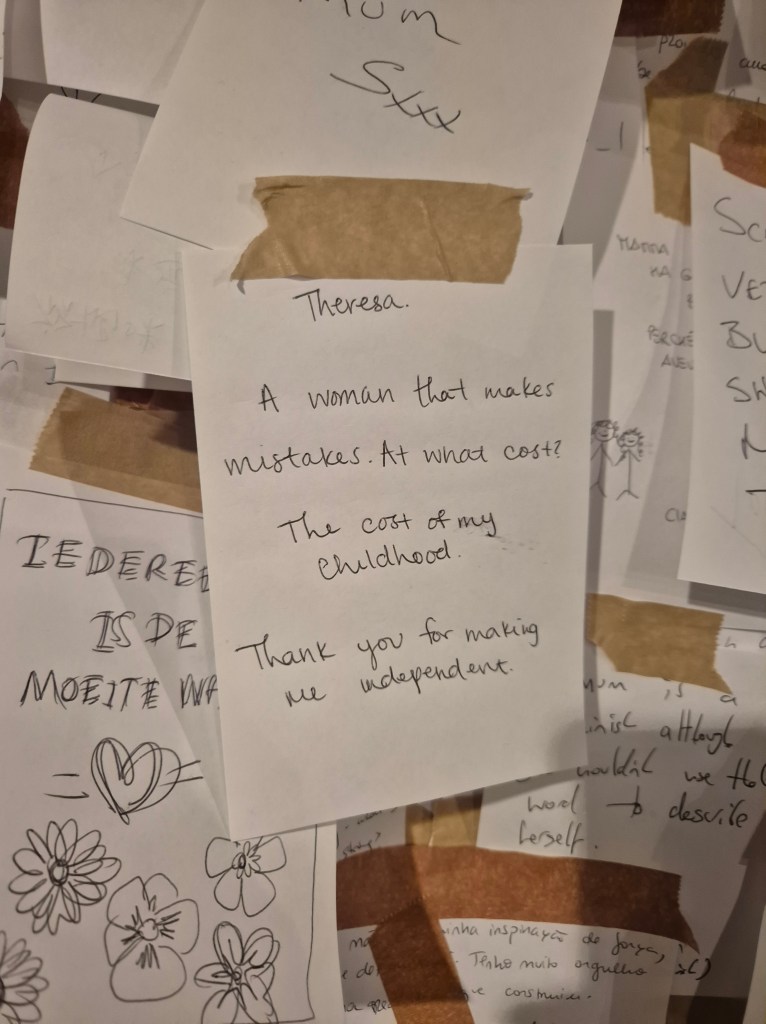 MUM
Sxxx
Theresa.
A woman that makes
mistakes. At what cost?
The cost of my
childhood.
Thank you for making
me independent.
IEDEREE
IS DE
MOEITE WA
SC
VE
BU
SH
MAMMA
HA
PERCHÉ
mum is a
although
wouldn't use that
word to describe
herself.
inha inspiração de força,
Tenho muito orgulho
que construiu.